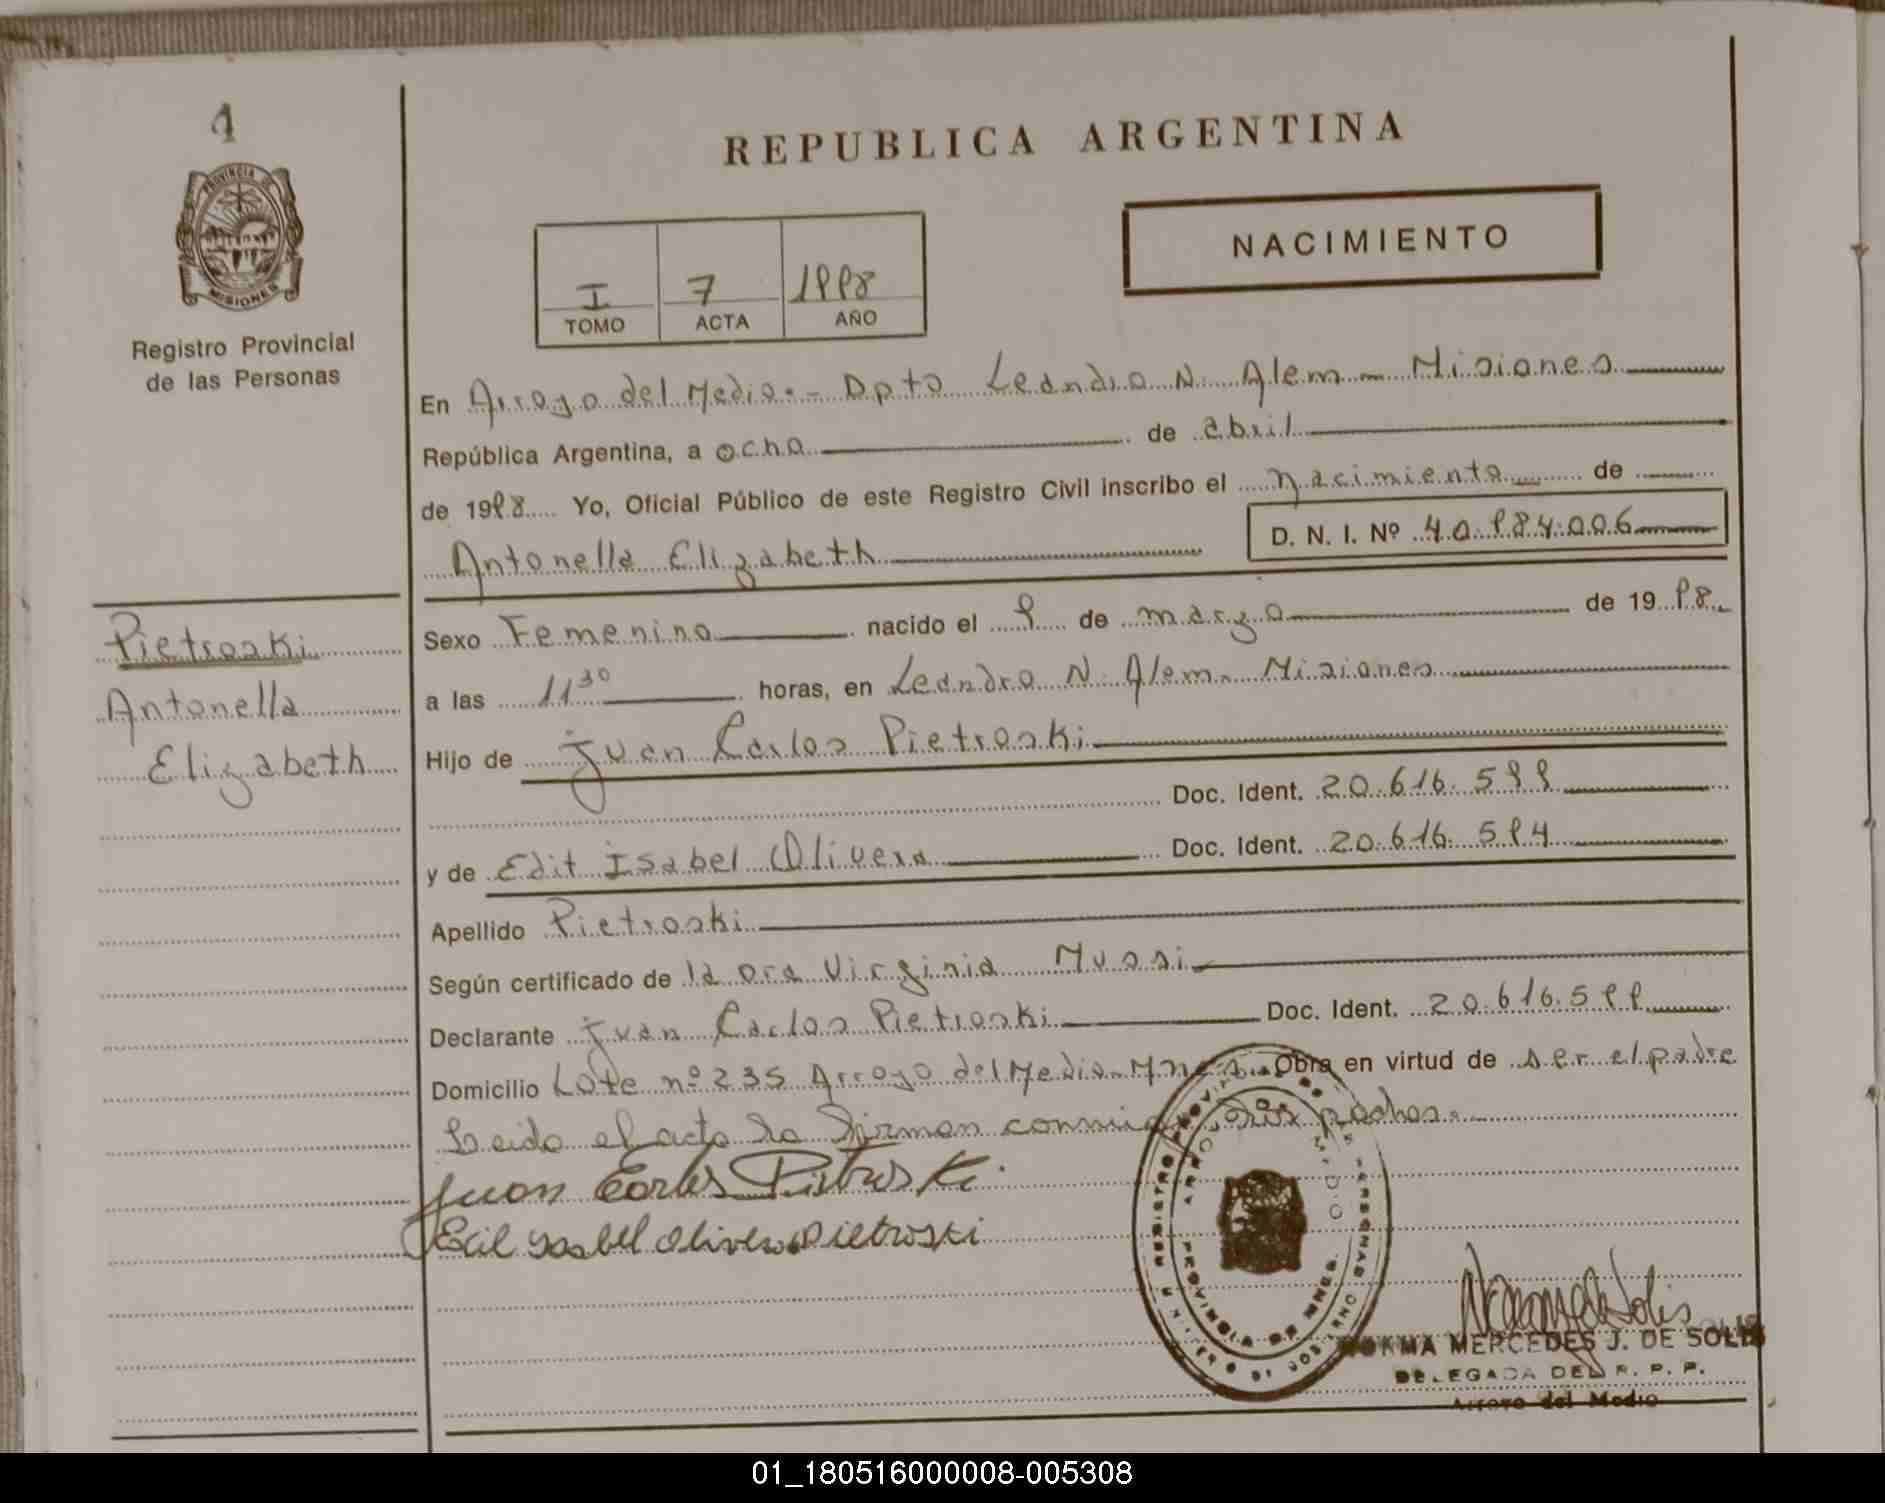 1
PROVINCIA DE
MISIONES
Registro Provincial
de las Personas
REPUBLICA ARGENTINA
I 7 1998
TOMO ACTA AÑO
NACIMIENTO
En Arroyo del Medio.- Dpto Leandro N. Alem - Misiones
República Argentina, a ocho de abril
de 1998 Yo, Oficial Público de este Registro Civil inscribo el nacimiento de
D. N. I. Nº 40.984.006
Antonella Elizabeth
Pietroski
Antonella
Elizabeth
Sexo Femenino nacido el 9 de marzo de 1998
a las 11 30 horas, en Leandro N. Alem. Misiones
Hijo de Juan Carlos Pietroski
Doc. Ident. 20.616.599
y de Edit Isabel Olivera Doc. Ident. 20.616.594
Apellido Pietroski
Según certificado de la ora Virginia Mussi
Declarante Juan Carlos Pietroski Doc. Ident. 20.616.599
Domicilio Lote nº 235 Arroyo del Medio-Mnes. Obra en virtud de ser el padre
Leido el acta la firman conmigo los padres.
Juan Carlos Pietroski
Edit Isabel Olivera Pietroski
PROVINCIA DE MNES.
NORMA MERCEDES J. DE SOLIS
DELEGADA DEL R. P. P.
Arroyo del Medio
01_180516000008-005308